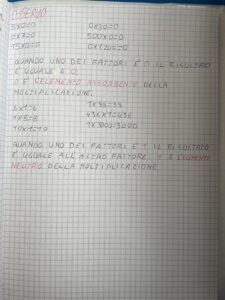 OSSERVO
3X0=0 0X30=0
0X7=0 500X0=0
15X0=0 0X1200=0
QUANDO UNO DEI FATTORI È 0 IL RISULTATO
È UGUALE A 0.
0 È L'ELEMENTO ASSORBENTE DELLA
MOLTIPLICAZIONE.
6X1=6 1X35=35
1X8=8 436X1=436
19X1=19 1X3000=3000
QUANDO UNO DEI FATTORI È 1 IL RISULTATO
È UGUALE ALL'ALTRO FATTORE. 1 È L'ELEMENTO
NEUTRO DELLA MOLTIPLICAZIONE